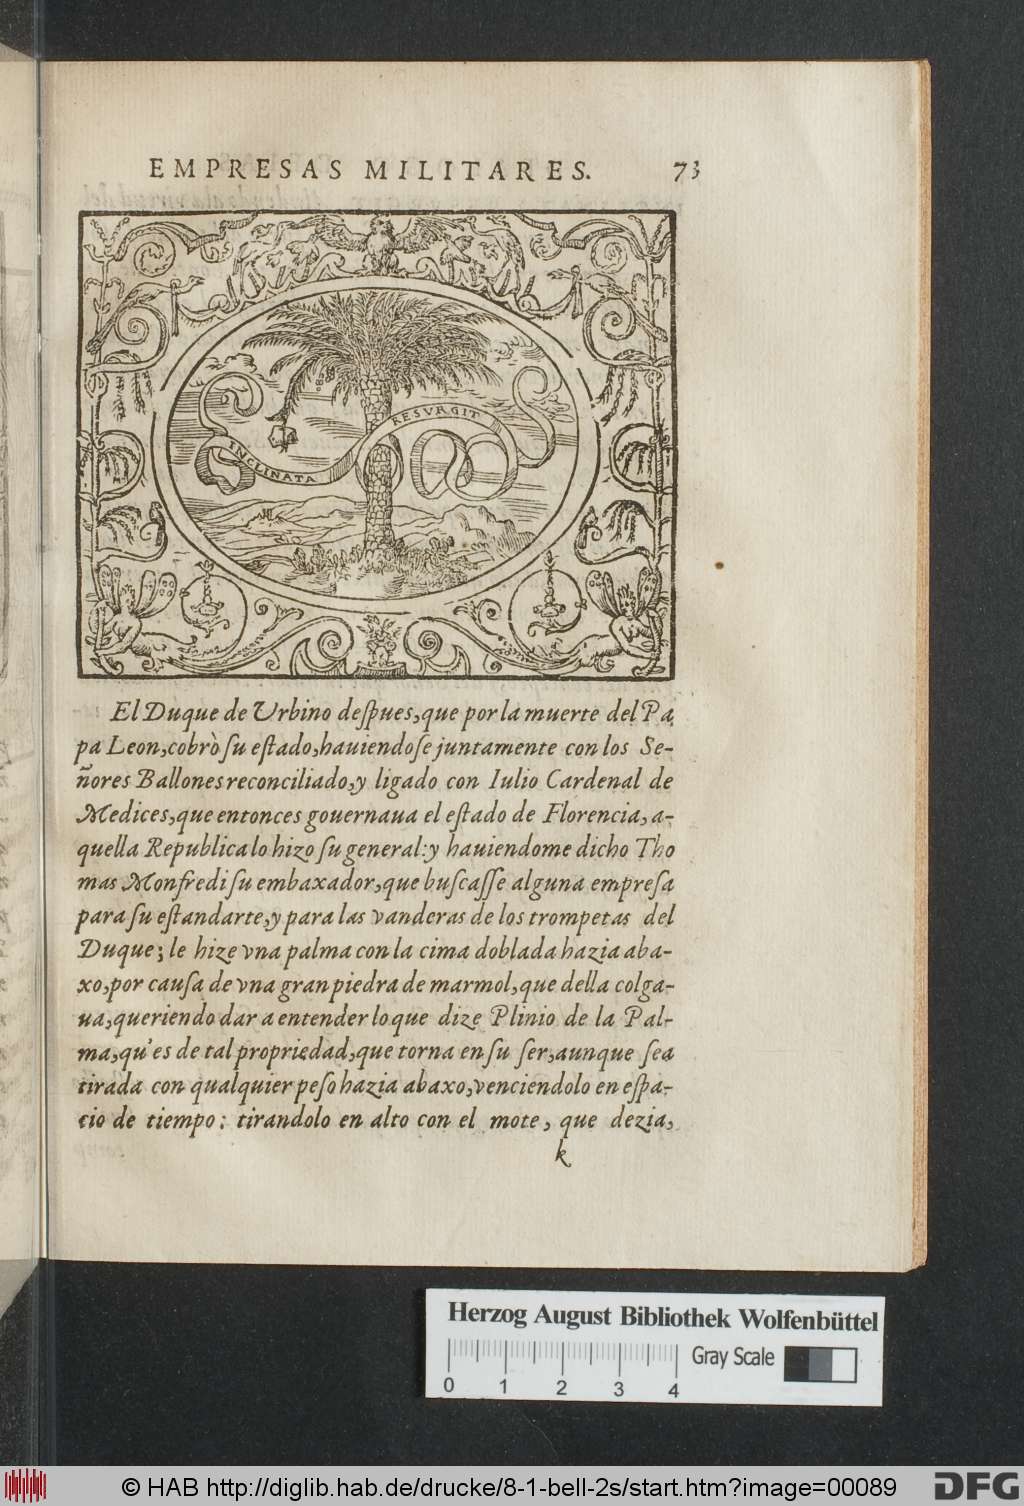 EMPRESAS MILITARES. 73
INCLINATA RESVRGIT
El Duque de Vrbino deſpues, que por la muerte del Pa
pa Leon, cobrò ſu eſtado, hauiendoſe juntamente con los Se-
ñores Ballones reconciliado, y ligado con Iulio Cardenal de
Medices, que entonces gouernaua el eſtado de Florencia, a-
quella Republica lo hizo ſu general: y hauiendome dicho Tho
mas Monfredi ſu embaxador, que buſcaſſe alguna empreſa
para ſu eſtandarte, y para las vanderas de los trompetas del
Duque; le hize vna palma con la cima doblada hazia aba-
xo, por cauſa de vna gran piedra de marmol, que della colga-
ua, queriendo dar a entender lo que dize Plinio de la Pal-
ma, qu'es de tal propriedad, que torna en ſu ſer, aunque ſea
tirada con qualquier peſo hazia abaxo, venciendolo en eſpa-
cio de tiempo: tirandolo en alto con el mote, que dezia,
k
Herzog August Bibliothek Wolfenbüttel
Gray Scale
0 1 2 3 4
© HAB http://diglib.hab.de/drucke/8-1-bell-2s/start.htm?image=00089
DFG